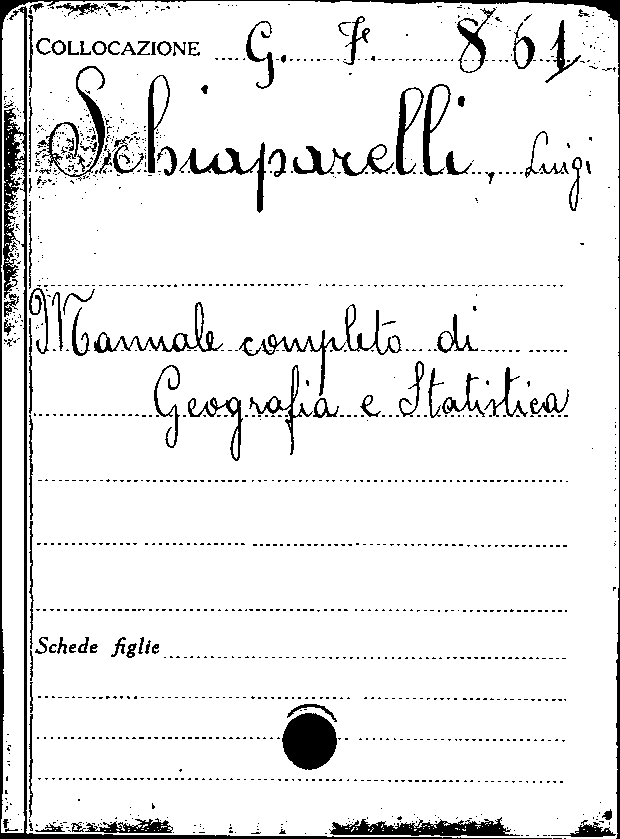 COLLOCAZIONE G. F. 861
Schiaparelli, Luigi
Manuale completo di
Geografia e Statistica
Schede figlie